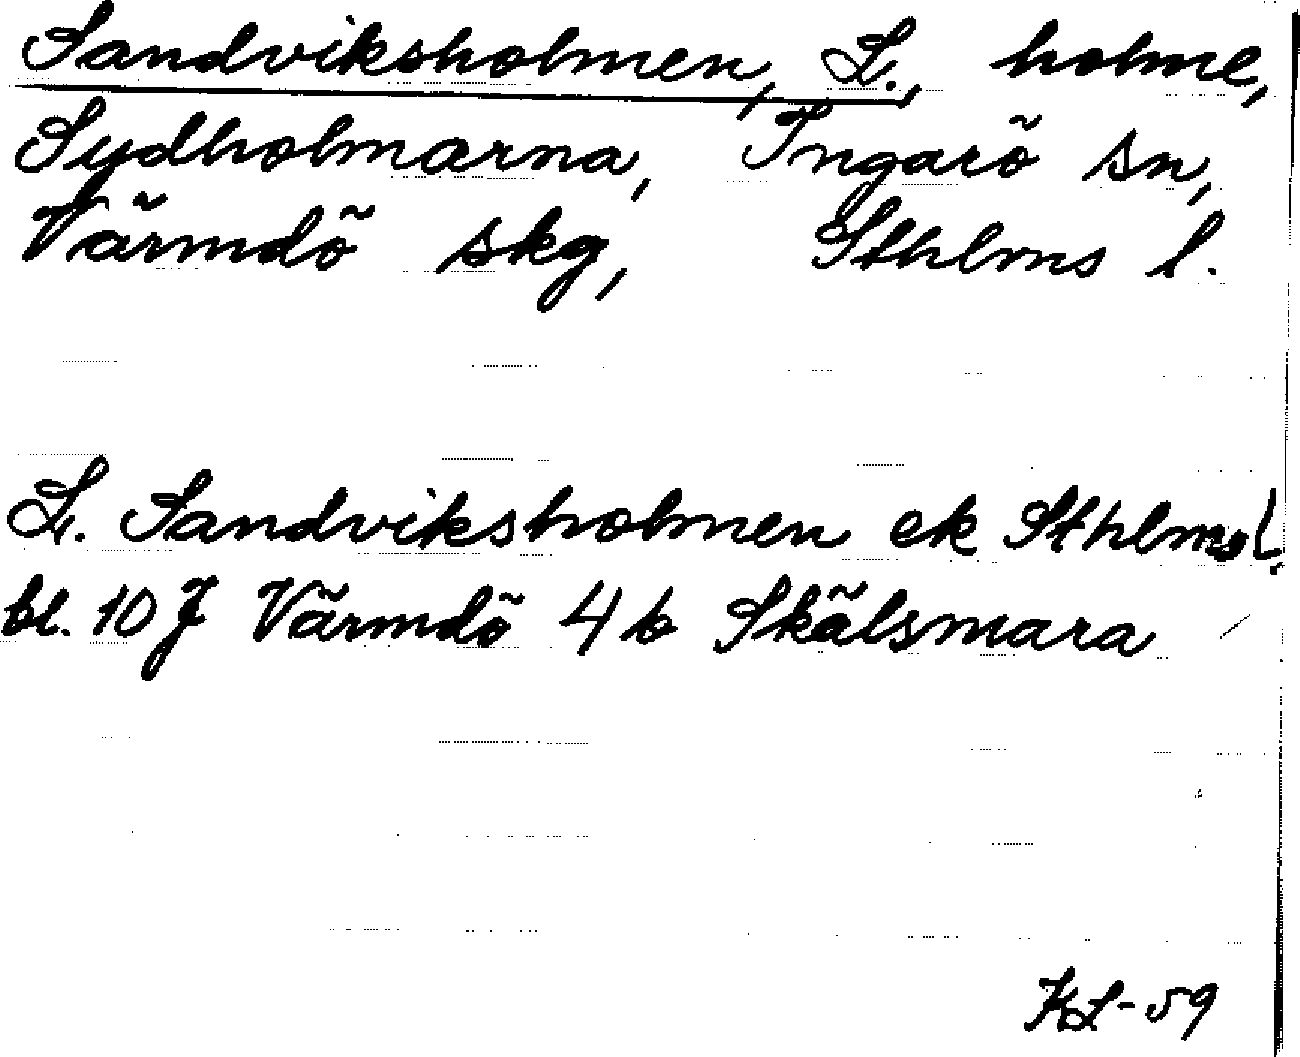 Sandviksholmen, L., holme,
Sydholmarna, Ingarö sn,
Värmdö skg, Sthlms l.
L. Sandviksholmen ek Sthlms l.
bl. 10 J Värmdö 4 b Skälsmara
KL-59